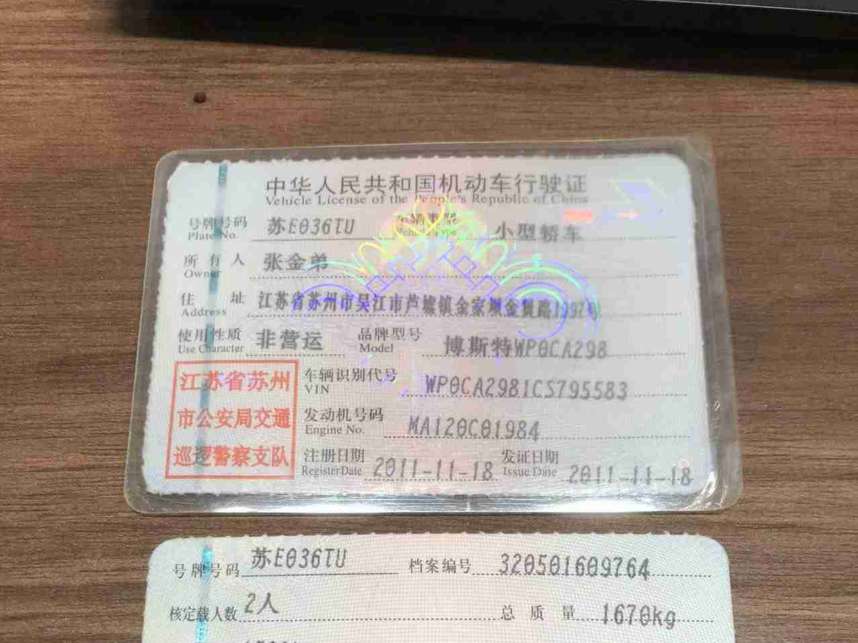 中华人民共和国机动车行驶证
Vehicle License of the People's Republic of China
号牌号码 苏E036TU 车辆类型 小型轿车
Plate No. Vehicle Type
所有人 张金弟
Owner
住址 江苏省苏州市吴江市芦墟镇金家坝金贤路1997号
Address
使用性质 非营运 品牌型号 博斯特WP0CA298
Use Character Model
江苏省苏州
市公安局交通
巡逻警察支队
车辆识别代号 WP0CA2981CS795583
VIN
发动机号码 MA120C01984
Engine No.
注册日期 2011-11-18 发证日期 2011-11-18
Register Date Issue Date
号牌号码 苏E036TU 档案编号 320501609764
核定载人数 2人 总质量 1670kg